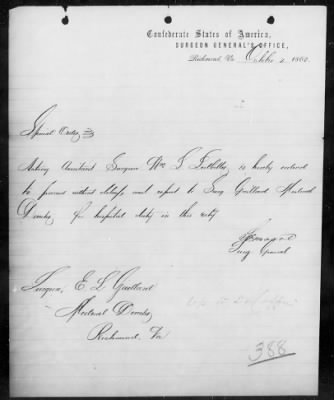 Confederate States of America,
SURGEON GENERAL'S OFFICE,
Richmond, Va. October 2, 1862.
Special Order
Acting Assistant Surgeon Wm S. is hereby ordered
to proceed without delay and report to Surg Guillard Medical
Director for hospital duty in this city
Surg General
Surgeon, E. L Guillard
Medical Director
Richmond, Va
388